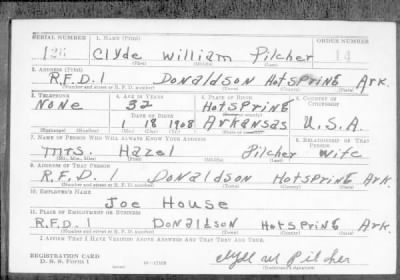 SERIAL NUMBER 1. NAME (Print) ORDER NUMBER
126 Clyde William Pilcher 14
(First) (Middle) (Last)
2. ADDRESS (Print)
R.F.D. 1 Donaldson Hotspring Ark.
(Number and street or R. F. D. number) (Town) (County) (State)
3. TELEPHONE 4. AGE IN YEARS 5. PLACE OF BIRTH 6. COUNTRY OF CITIZENSHIP
None 32 Hotspring
DATE OF BIRTH
1 8 1908 Arkansas U.S.A.
(Exchange) (Number) (Mo.) (Day) (Yr.) (State or country)
7. NAME OF PERSON WHO WILL ALWAYS KNOW YOUR ADDRESS 8. RELATIONSHIP OF THAT PERSON
Mrs. Hazel Pilcher Wife
(Mr., Mrs., Miss) (First) (Middle) (Last)
9. ADDRESS OF THAT PERSON
R.F.D. 1 Donaldson Hotspring Ark.
(Number and street or R. F. D. number) (Town) (County) (State)
10. EMPLOYER'S NAME
Joe House
11. PLACE OF EMPLOYMENT OR BUSINESS
R.F.D. 1 Donaldson Hotspring Ark
(Number and street or R. F. D. number) (Town) (County) (State)
I AFFIRM THAT I HAVE VERIFIED ABOVE ANSWERS AND THAT THEY ARE TRUE.
REGISTRATION CARD Clyde W Pilcher
D. S. S. Form 1 (Registrant's signature)